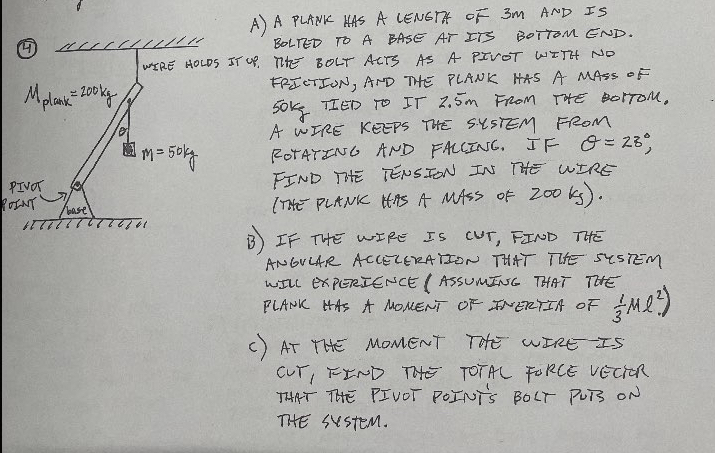 A) A PLANK HAS A LENGTH OF 3m AND IS
BOLTED TO A BASE AT ITS BOTTOM END.
THE BOLT ACTS AS A PIVOT WITH NO
FRICTION, AND THE PLANK HAS A MASS OF
50kg TIED TO IT 2.5m FROM THE BOTTOM.
A WIRE KEEPS THE SYSTEM FROM
ROTATING AND FALLING. IF θ = 28°,
FIND THE TENSION IN THE WIRE
(THE PLANK HAS A MASS OF 200 kg).
B) IF THE WIRE IS CUT, FIND THE
ANGULAR ACCELERATION THAT THE SYSTEM
WILL EXPERIENCE (ASSUMING THAT THE
PLANK HAS A MOMENT OF INERTIA OF 1/3 Ml²)
C) AT THE MOMENT THE WIRE IS
CUT, FIND THE TOTAL FORCE VECTOR
THAT THE PIVOT POINT'S BOLT PUTS ON
THE SYSTEM.
4
WIRE HOLDS IT UP.
M plank = 200kg
θ
m = 50kg
PIVOT
POINT
base